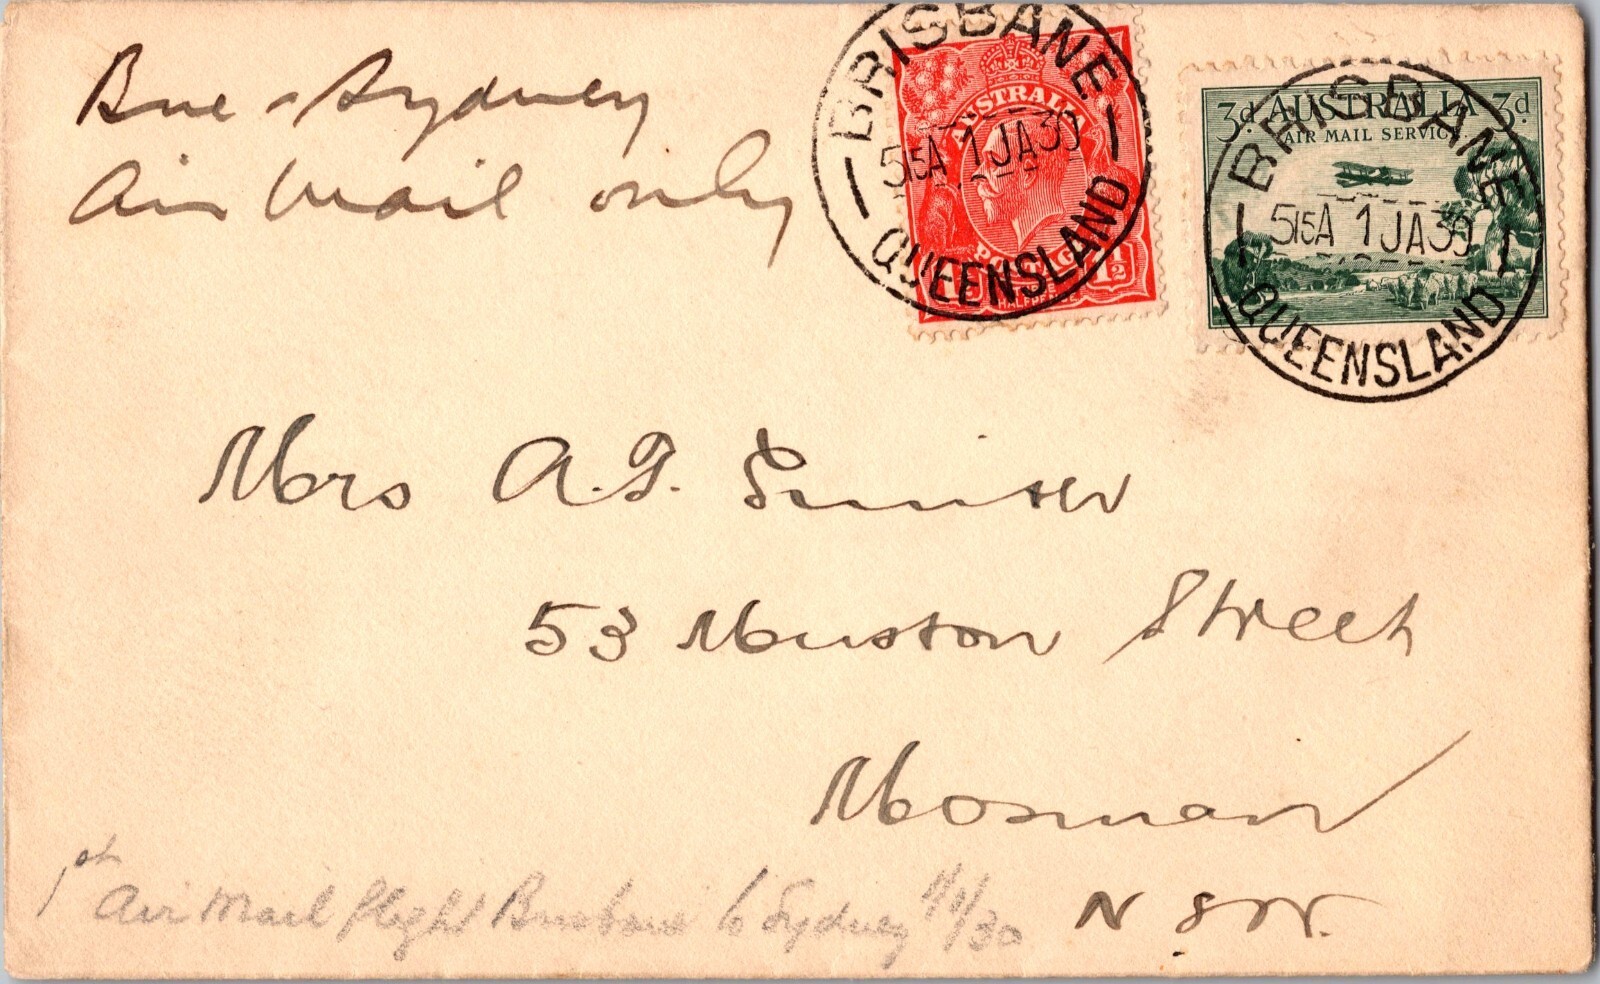 Bne - Sydney
Air Mail only
BRISBANE
515A 1 JA 30
QUEENSLAND
AUSTRALIA
POSTAGE
HALFPENCE
3d AUSTRALIA 3d
AIR MAIL SERVICE
BRISBANE
515A 1 JA 30
QUEENSLAND
Mrs A.F.
53 Muston Street
Mosman
N.S.W.
1st Air Mail flight Brisbane to Sydney 1/1/30